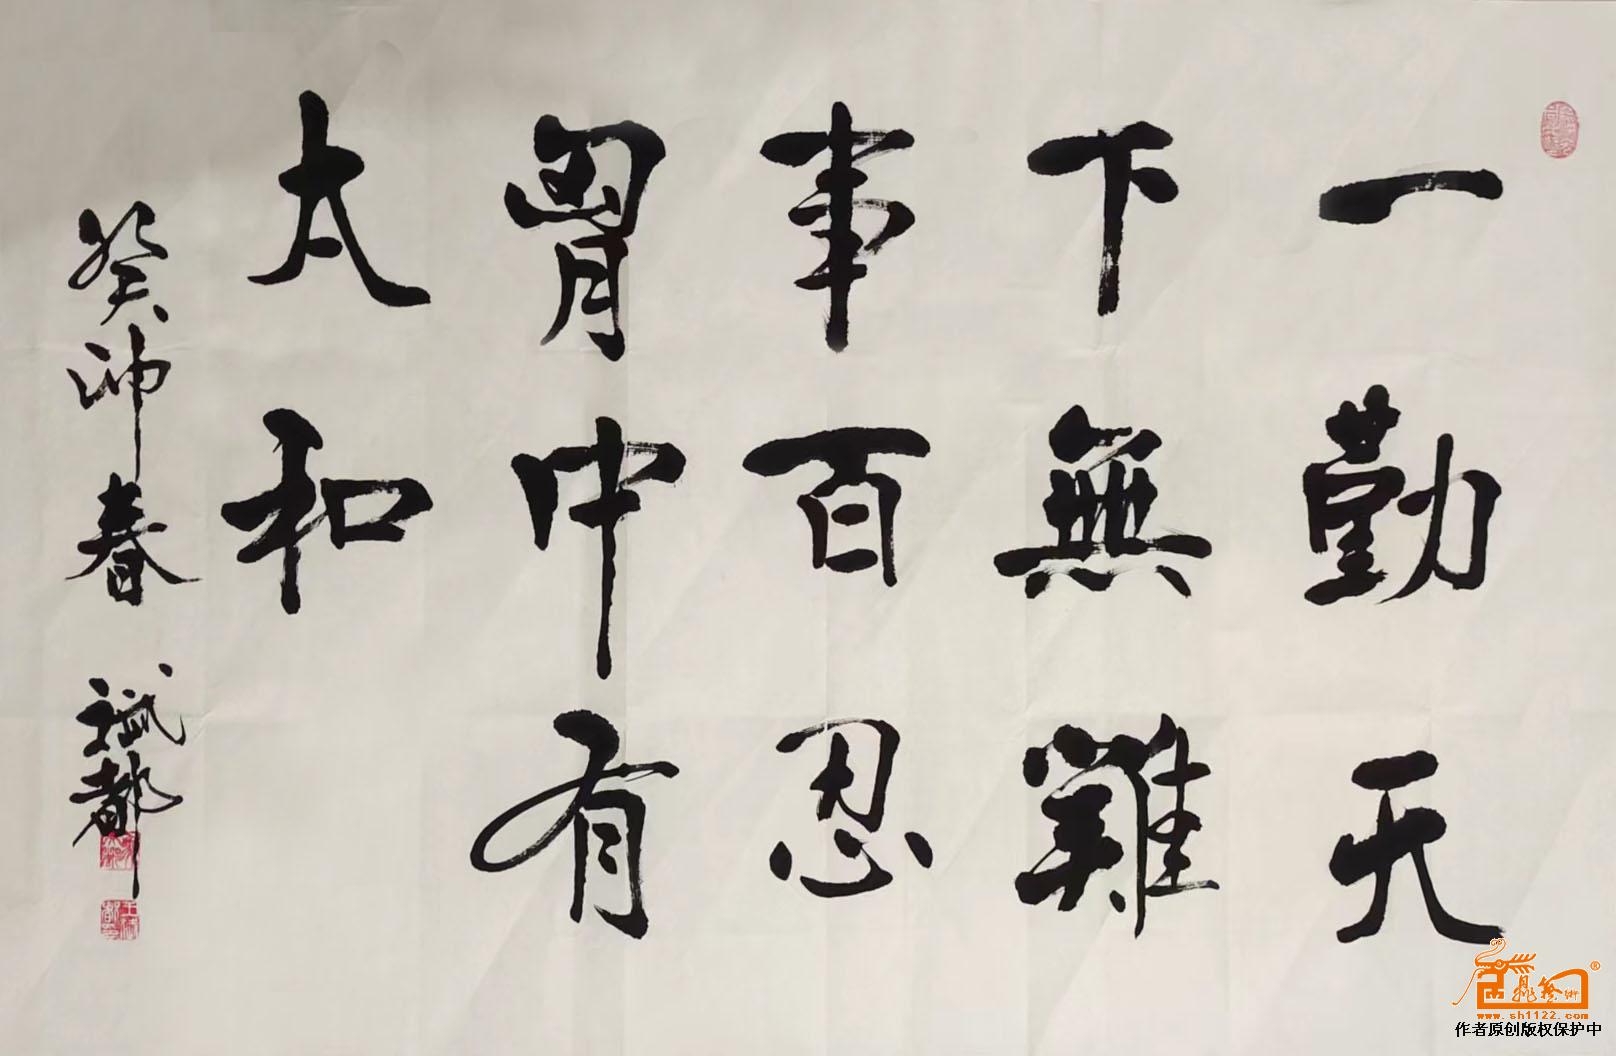 一勤天
下無難
事百忍
胷中有
太和
癸卯春 斌都
www.sh1122.com
作者原创版权保护中